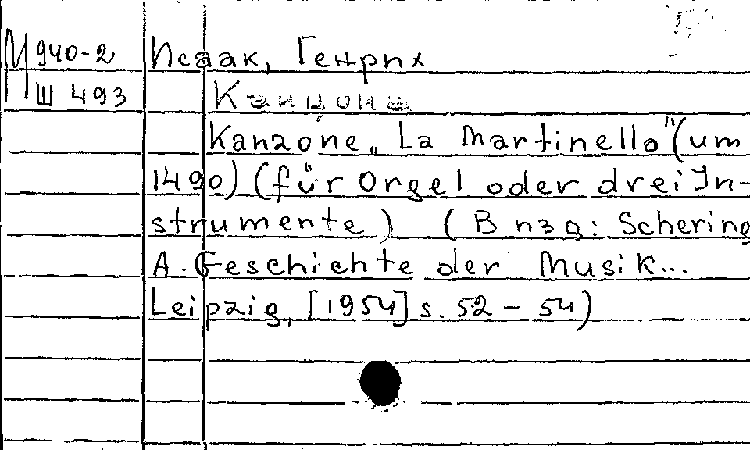 М 940-2 Исаак, Генрих
Ш 493 Канцона
Kanzone „La Martinello" (um
1490) (für Orgel oder drei In-
strumente) (В изд: Schering
A. Geschichte der Musik...
Leipzig, [1954] s. 52 - 54)